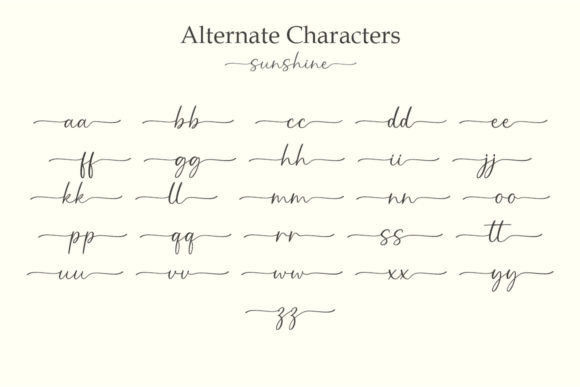 Alternate Characters
sunshine
aa bb cc dd ee
ff gg hh ii jj
kk ll mm nn oo
pp qq rr ss tt
uu vv ww xx yy
zz